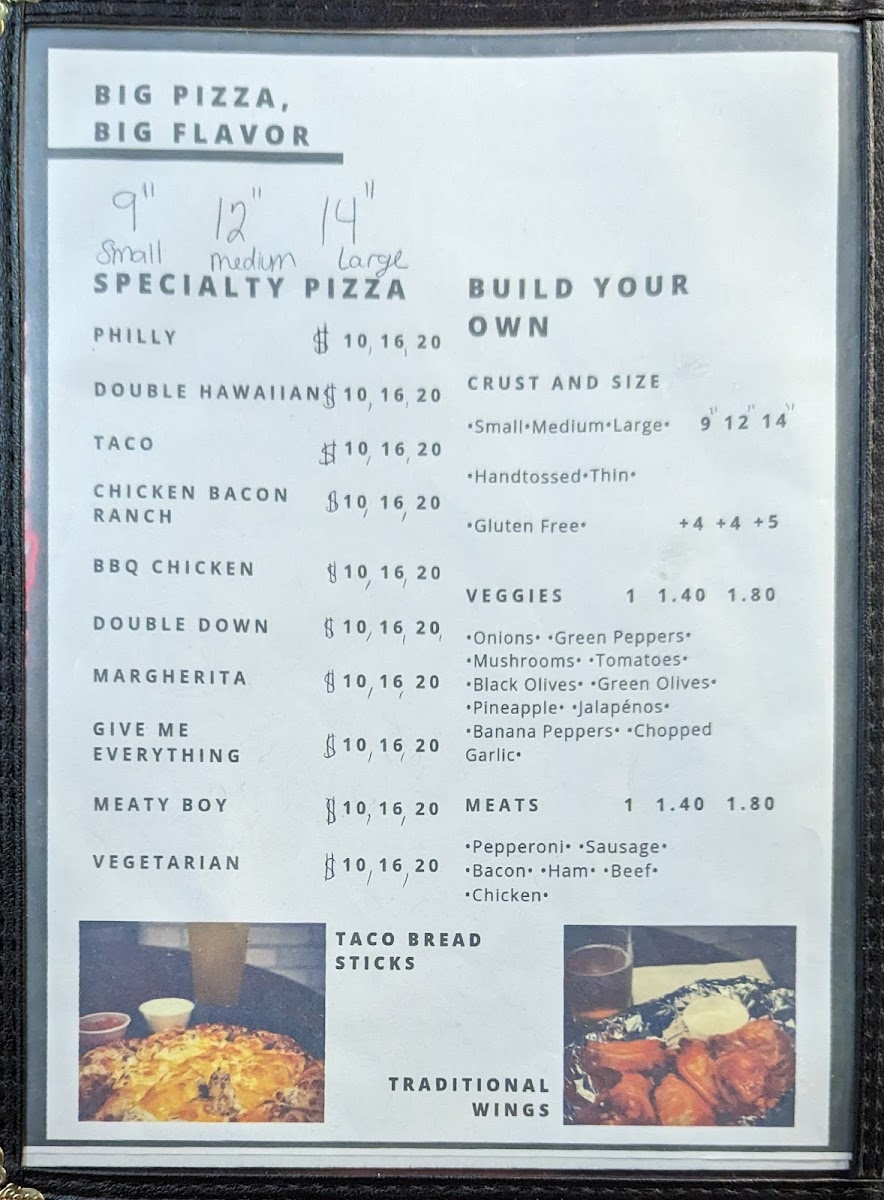 BIG PIZZA,
BIG FLAVOR
9" 12" 14"
Small medium Large
SPECIALTY PIZZA
PHILLY $ 10, 16, 20
DOUBLE HAWAIIAN $ 10, 16, 20
TACO $ 10, 16, 20
CHICKEN BACON
RANCH $ 10, 16, 20
BBQ CHICKEN $ 10, 16, 20
DOUBLE DOWN $ 10, 16, 20,
MARGHERITA $ 10, 16 20
GIVE ME
EVERYTHING $ 10, 16, 20
MEATY BOY $ 10, 16, 20
VEGETARIAN $ 10, 16, 20
BUILD YOUR
OWN
CRUST AND SIZE
•Small•Medium•Large• 9" 12" 14"
•Handtossed•Thin•
•Gluten Free• +4 +4 +5
VEGGIES 1 1.40 1.80
•Onions• •Green Peppers•
•Mushrooms• •Tomatoes•
•Black Olives• •Green Olives•
•Pineapple• •Jalapénos•
•Banana Peppers• •Chopped
Garlic•
MEATS 1 1.40 1.80
•Pepperoni• •Sausage•
•Bacon• •Ham• •Beef•
•Chicken•
TACO BREAD
STICKS
TRADITIONAL
WINGS